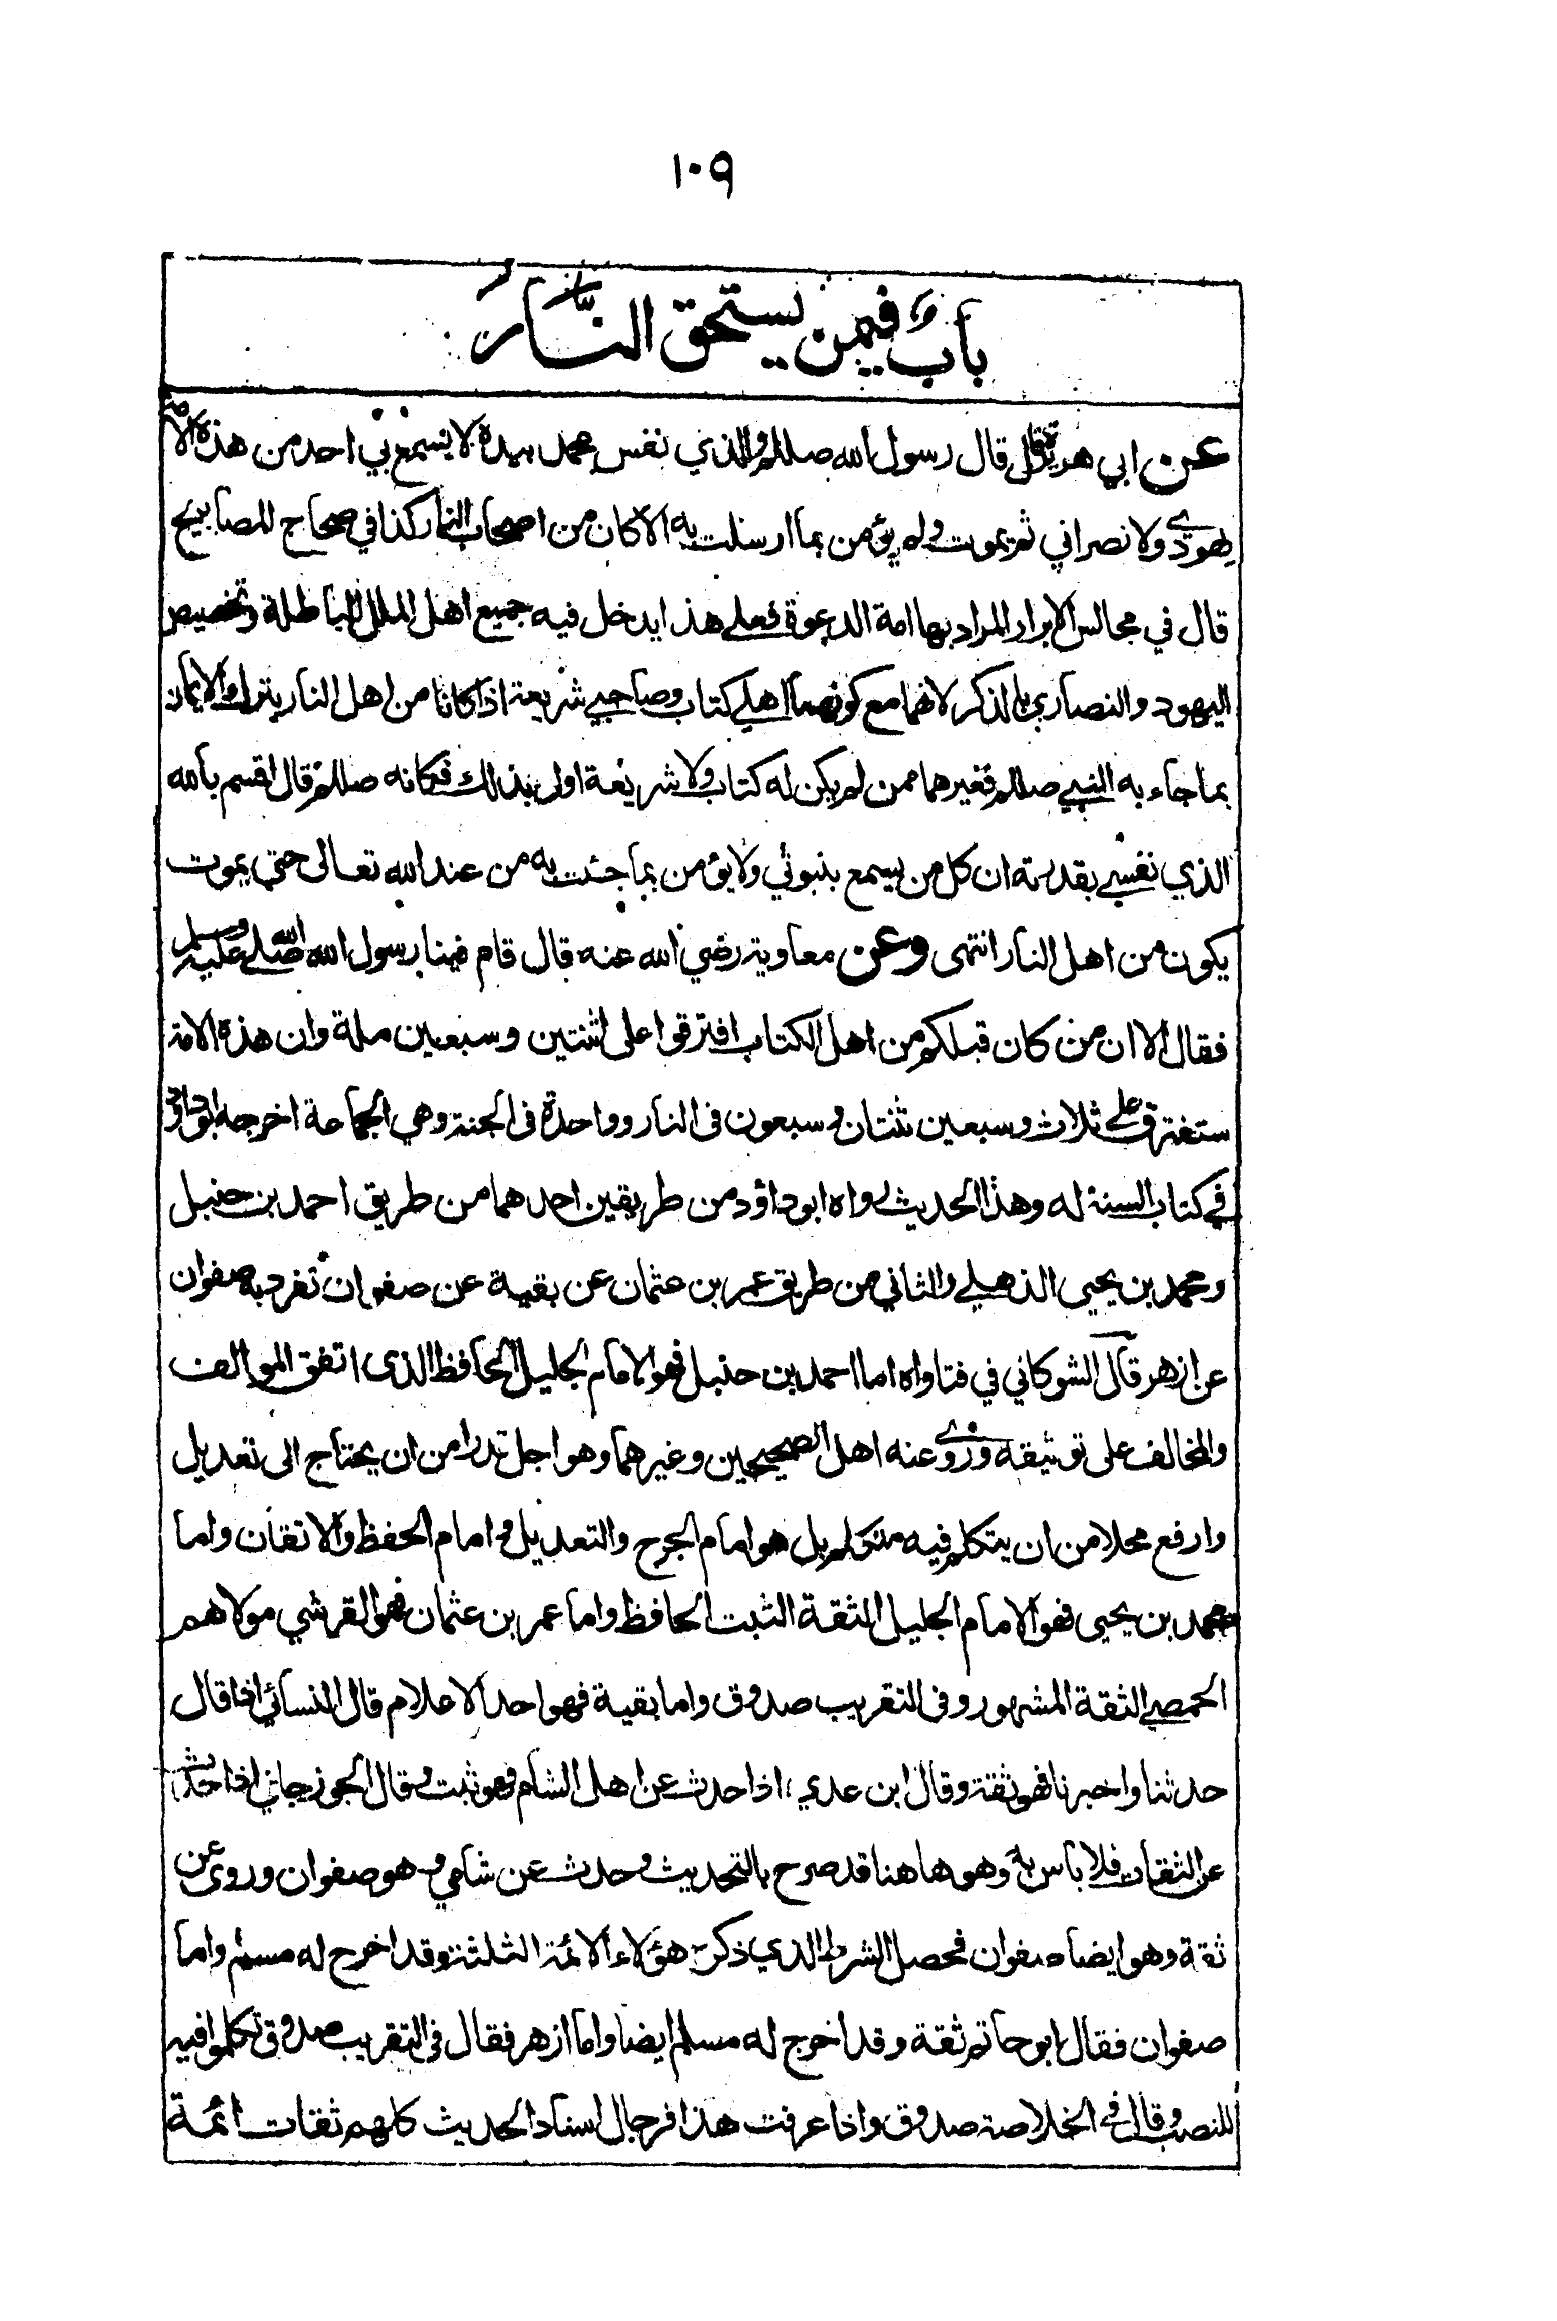 ١٠٩
باب فيمن يستحق النار
عن ابي هريرة قال قال رسول الله صللم والذي نفس محمد بيده لا يسمع بي احد من هذه الامة
يهودي ولا نصراني ثم يموت ولم يؤمن بما ارسلت به الا كان من اصحاب النار كذا في صحاح المصابيح
قال في مجالس الابرار المراد بها امة الدعوة فعلى هذا يدخل فيه جميع اهل الملل الباطلة وتخصيص
اليهود والنصارى بالذكر لانهما مع كونهما اهلي كتاب وصاحبي شريعة اذا كانا من اهل النار بترك الايمان
بما جاء به النبي صللم فغيرهما ممن لم يكن له كتاب ولا شريعة اولى بذلك فكانه صللم قال اقسم بالله
الذي نفسي بقدرته ان كل من يسمع بنبوتي ولا يؤمن بما جئت به من عند الله تعالى حتى يموت
يكون من اهل النار انتهى وعن معاوية رضي الله عنه قال قام فينا رسول الله صلى الله عليه وسلم
فقال الا ان من كان قبلكم من اهل الكتاب افترقوا على اثنتين وسبعين ملة وان هذه الامة
ستفترق على ثلاث وسبعين ثنتان وسبعون فى النار وواحدة فى الجنة وهي الجماعة اخرجه ابو داؤد
في كتاب السنة له وهذا الحديث رواه ابو داؤد من طريقين احدهما من طريق احمد بن حنبل
ومحمد بن يحيى الذهلي والثاني من طريق عمر بن عثمان عن بقية عن صفوان تفرد به صفوان
عن ازهر قال الشوكاني في فتاواه اما احمد بن حنبل فهو الامام الجليل الحافظ الذى اتفق الموالف
والمخالف على توثيقه وروى عنه اهل الصحيحين وغيرهما وهو اجل قدرا من ان يحتاج الى تعديل
وارفع محلا من ان يتكلم فيه متكلم بل هو امام الجرح والتعديل و امام الحفظ والاتقان واما
محمد بن يحيى فهو الامام الجليل الثقة الثبت الحافظ واما عمر بن عثمان فهو القرشي مولاهم
الحمصي الثقة المشهور وفى التقريب صدوق واما بقية فهو احد الاعلام قال النسائي اذا قال
حدثنا واخبرنا فهو ثقة وقال ابن عدي اذا حدث عن اهل الشام فهو ثبت وقال الجوزجاني اذا حدث
عن الثقات فلا باس به وهو هاهنا قد صرح بالتحديث وحدث عن شامي و هو صفوان وروى عن
ثقة وهو ايضا صفوان فحصل الشرط الذي ذكره هؤلاء الائمة الثلثة وقد اخرج له مسلم واما
صفوان فقال ابو حاتم ثقة وقد اخرج له مسلم ايضا واما ازهر فقال فى التقريب صدوق تكلموا فيه
للنصب وقال في الخلاصة صدوق واذا عرفت هذا فرجال اسناد الحديث كلهم ثقات ائمة